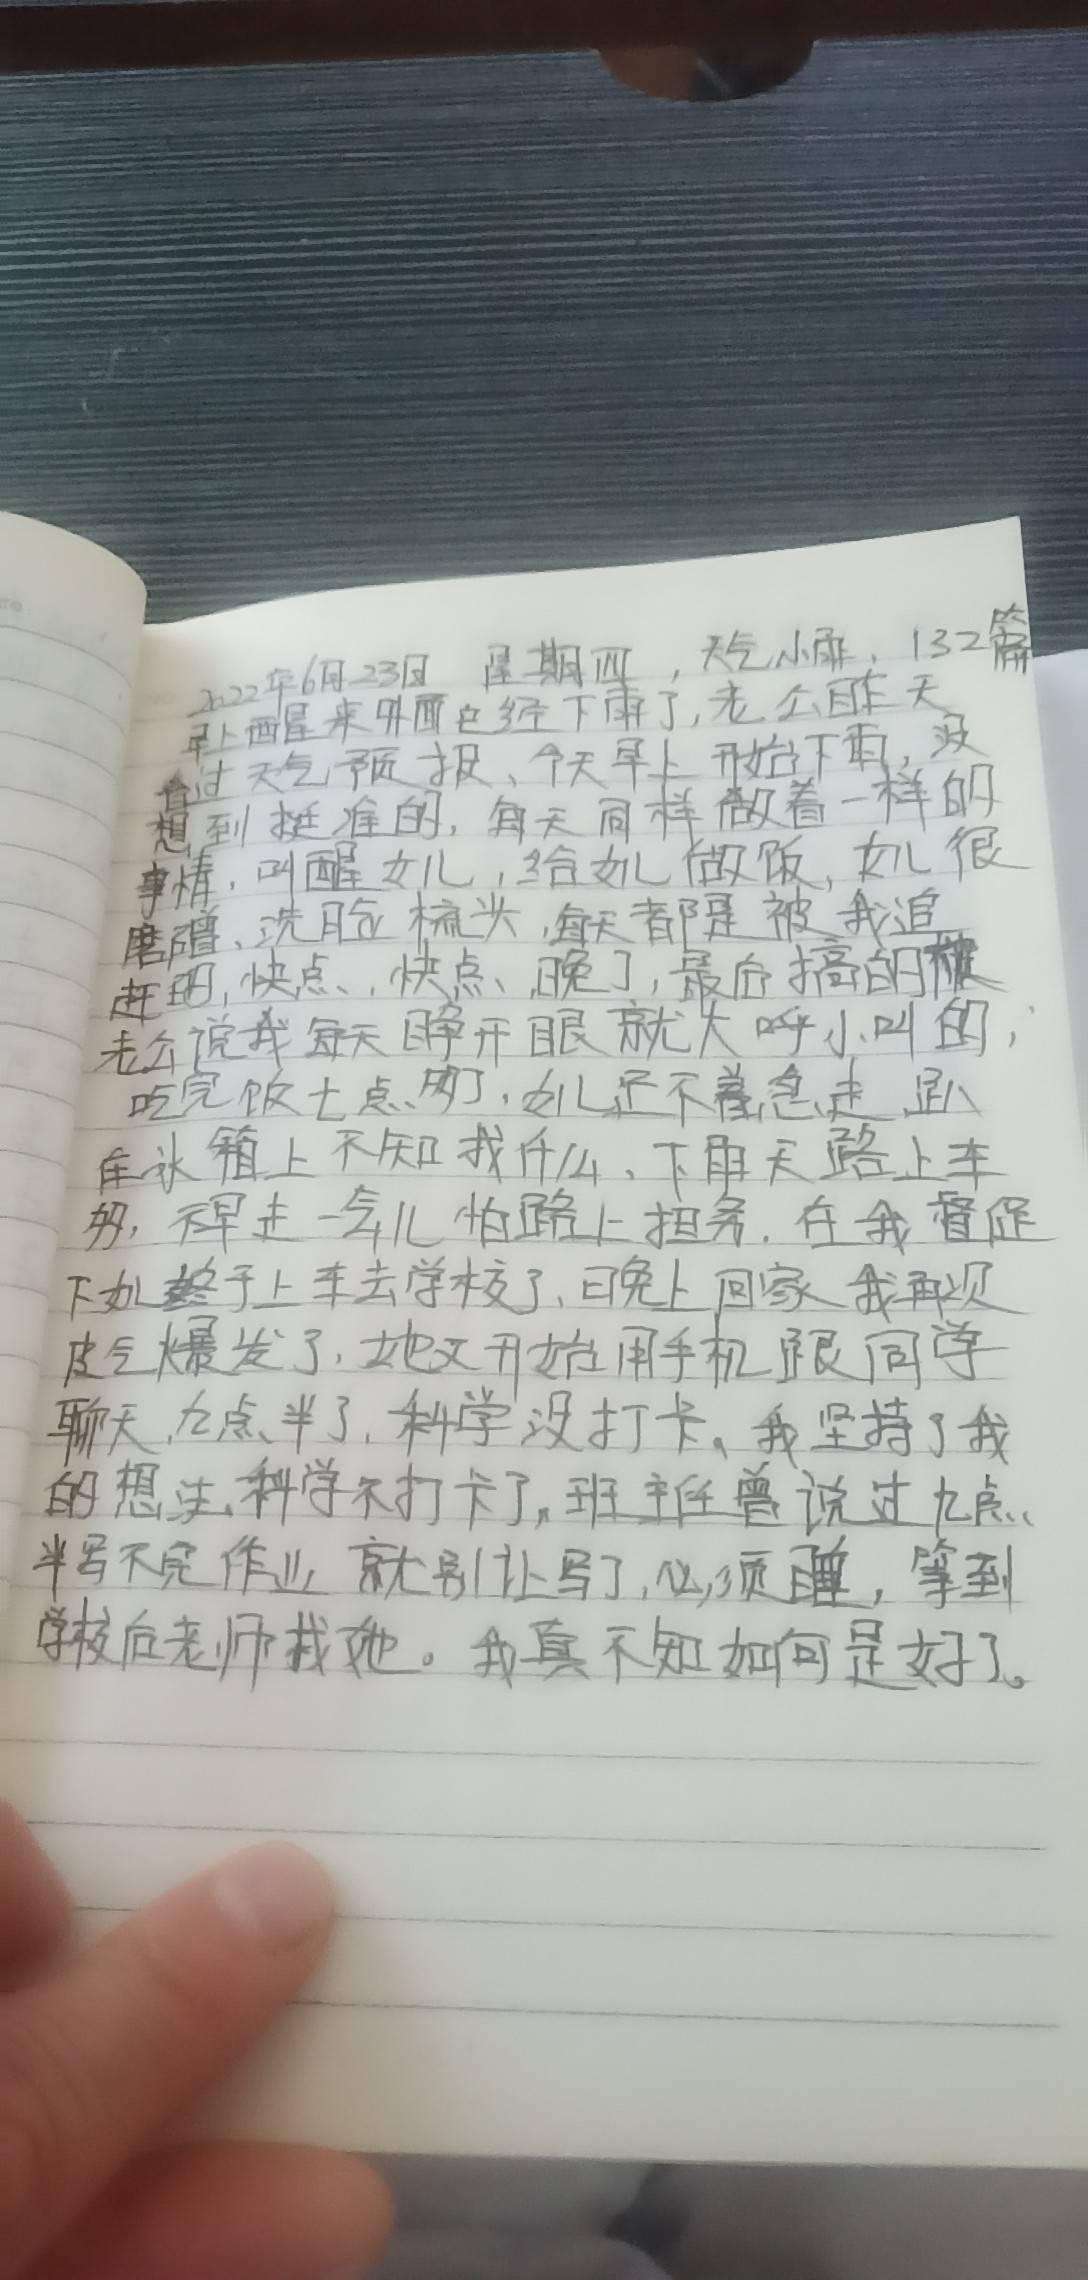 2022年6月23日 星期四，天气小雨，132篇
早上醒来外面已经下雨了，老公昨天
看过天气预报、今天早上开始下雨，没
想到挺准的，每天同样做着一样的
事情，叫醒女儿，给女儿做饭，女儿很
磨蹭、洗脸梳头，每天都是被我追
赶的，快点、，快点、晚了，最后搞的被
老公说我每天睁开眼就大呼小叫的，
吃完饭七点多了，女儿还不着急走，趴
在冰箱上不知找什么、下雨天路上车
多，不早走一会儿怕路上担务．在我督促
下女儿终于上车去学校了、晚上回家我再次
皮气爆发了，她又开始用手机跟同学
聊天，九点半了，科学没打卡。我坚持了我
的想法，科学不打卡了，班主任曾说过九点
半写不完作业，就别让写了，必须睡，等到
学校后老师找她。我真不知如何是好了。